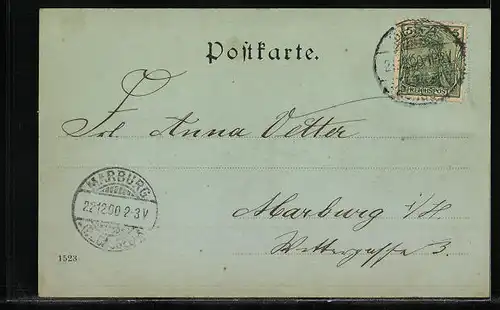 Postkarte.
5
REICHSPOST
Frl. Anna Vetter
MARBURG
22.12.00.2-3V
Marburg i/H.
Wettergasse 3.
1523